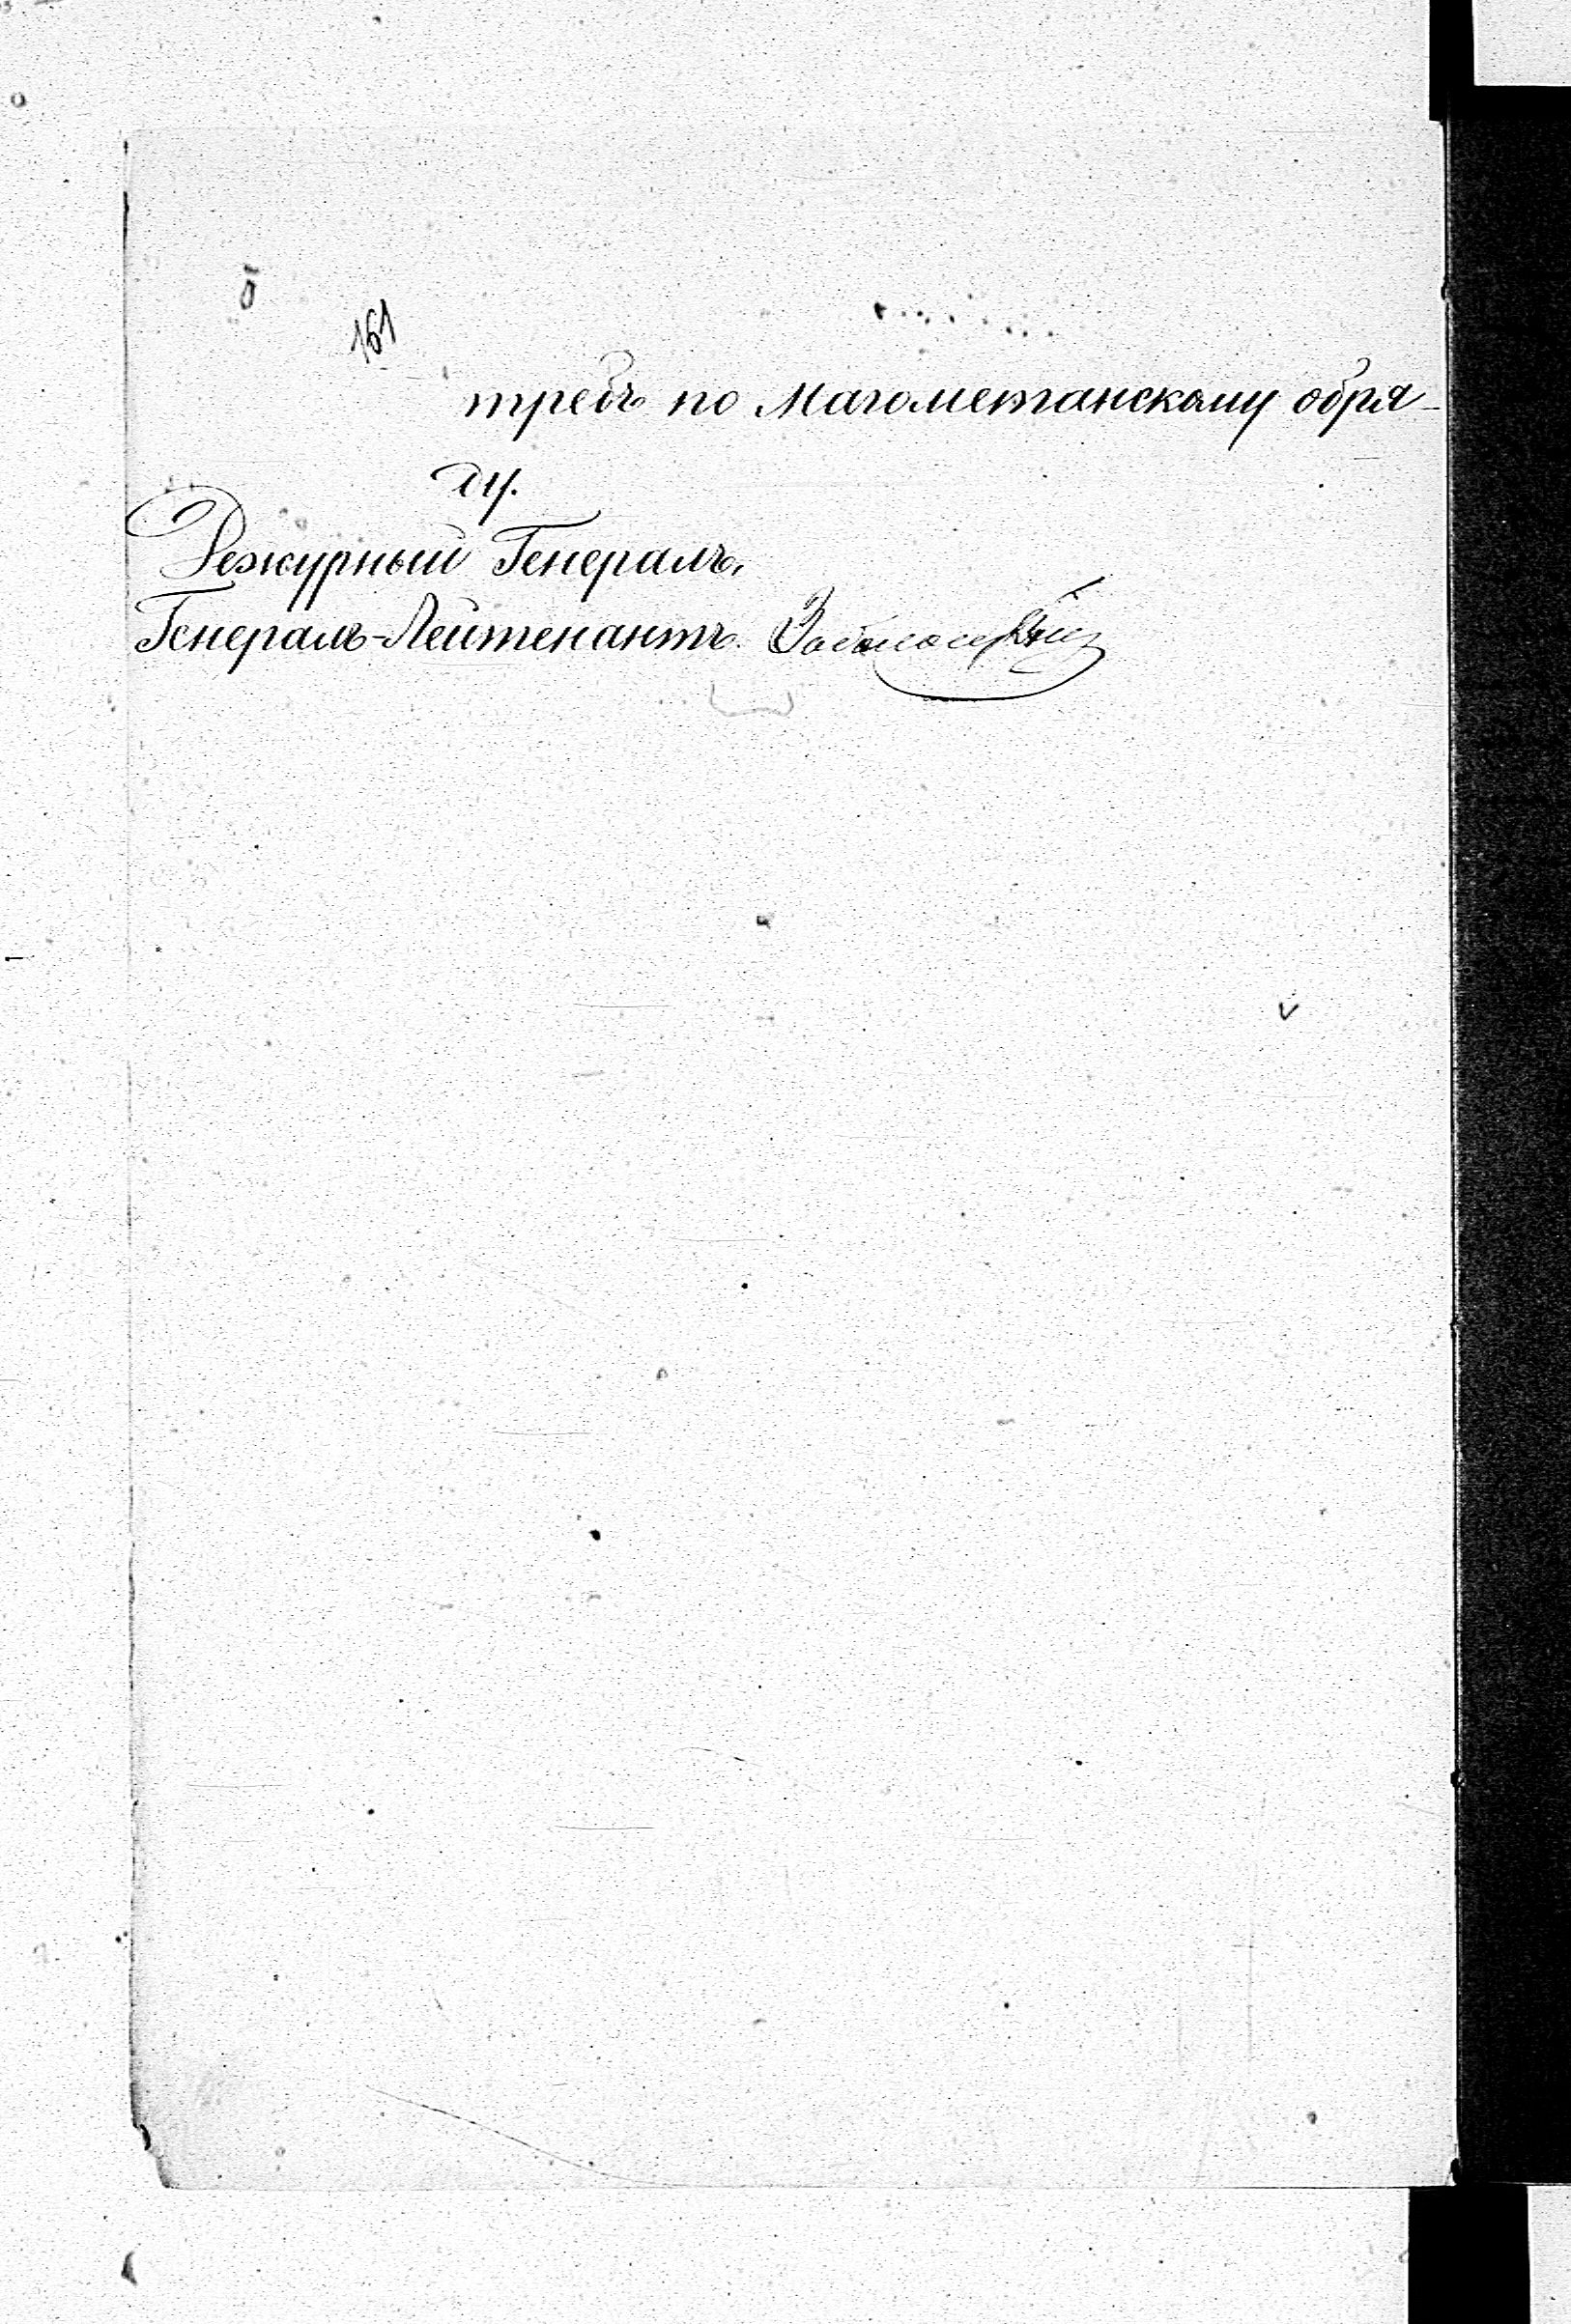 161
требъ по Магометанскому обря-
ду.
Дежурный Генералъ,
Генералъ-Лейтенантъ Заболоцкій